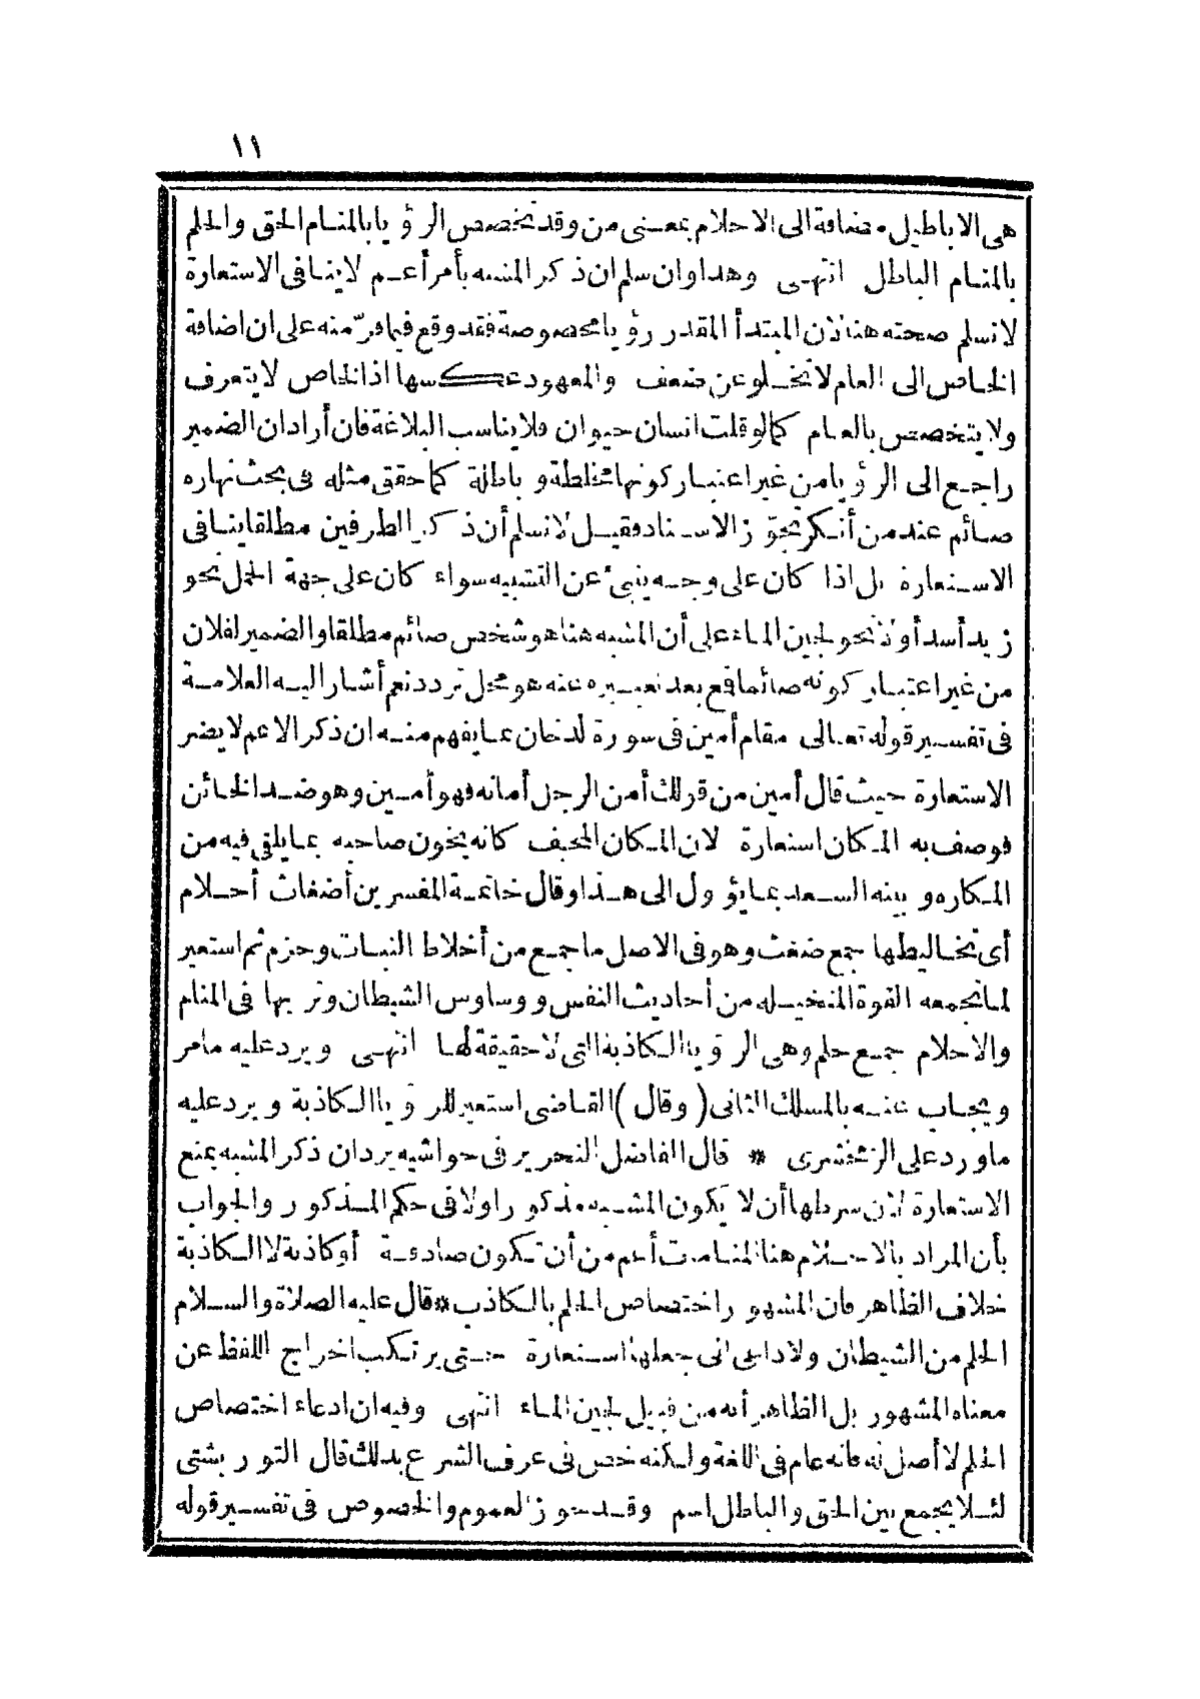 ١١
هى الاباطيل مضافة الى الاحلام بمعنى من وقد تخصص الرؤيا بالمنام الحق والحلم
بالمنام الباطل انتهى وهذا وان سلم ان ذكر المشبه بأمر أعم لا ينافى الاستعارة
لا نسلم صحته هنا لان المبتدأ المقدر رؤيا مخصوصة فقد وقع فيما فرّ منه على ان اضافة
الخاص الى العام لا تخلو عن ضعف والمعهود عكسها اذ الخاص لا يتعرف
ولا يتخصص بالعام كما لو قلت انسان حيوان ولا يناسب البلاغة فان أراد ان الضمير
راجع الى الرؤيا من غير اعتبار كونها مخلطة وباطلة كما حقق مثله فى بحث نهاره
صائم عند من أنكر تجوّز الاسناد فقيل لا نسلم أن ذكر الطرفين مطلقا ينافى
الاستعارة بل اذا كان على وجه ينبئ عن التشبيه سواء كان على جهة الحمل نحو
زيد أسد أو لا نحو لجين الماء على أن المشبه هنا هو شخص صائم مطلقا والضمير لفلان
من غير اعتبار كونه صائما فع بعد تعبيره عنه هو محل تردد نعم أشار اليه العلامة
فى تفسير قوله تعالى مقام أمين فى سورة لدخان بما يفهم منه ان ذكر الاعم لا يضر
الاستعارة حيث قال أمين من قولك أمن الرجل أمانه فهو أمين وهو ضد الخائن
فوصف به المكان استعارة لان المكان المخيف كانه يخون صاحبه بما يلقى فيه من
المكاره وبينه السعد بما يؤول الى هذا وقال خاتمة المفسرين أضغاث أحلام
أى تخاليطها جمع ضغث وهو فى الاصل ما جمع من أخلاط النبات وحزم ثم استعير
لما تجمعه القوة المتخيله من أحاديث النفس ووساوس الشيطان وتريها فى المنام
والاحلام جمع حلم وهى الرؤيا الكاذبة التى لا حقيقة لها انتهى ويرد عليه ما مر
ويجاب عنه بالمسلك الثانى (وقال) القاضى استعير للرؤيا الكاذبة ويرد عليه
ما ورد على الزمخشرى * قال الفاضل النحرير فى حواشيه يرد ان ذكر المشبه يمنع
الاستعارة لان شرطها أن لا يكون المشبه مذكورا ولا فى حكم المذكور والجواب
بأن المراد بالاحلام هنا المنامات أعم من أن تكون صادقة أو كاذبة لا الكاذبة
خلاف الظاهر فان المشهور اختصاص الحلم بالكاذب * قال عليه الصلاة والسلام
الحلم من الشيطان ولا داعى الى جعلها استعارة حتى يرتكب اخراج اللفظ عن
معناه المشهور بل الظاهر أنه من قبيل لجين الماء انتهى وفيه ان ادعاء اختصاص
الحلم لا أصل له فانه عام فى اللغة ولكنه خص فى عرف الشرع بذلك قال التوربشتى
لئلا يجمع بين الحق والباطل اسم وقد جوز العموم والخصوص فى تفسير قوله